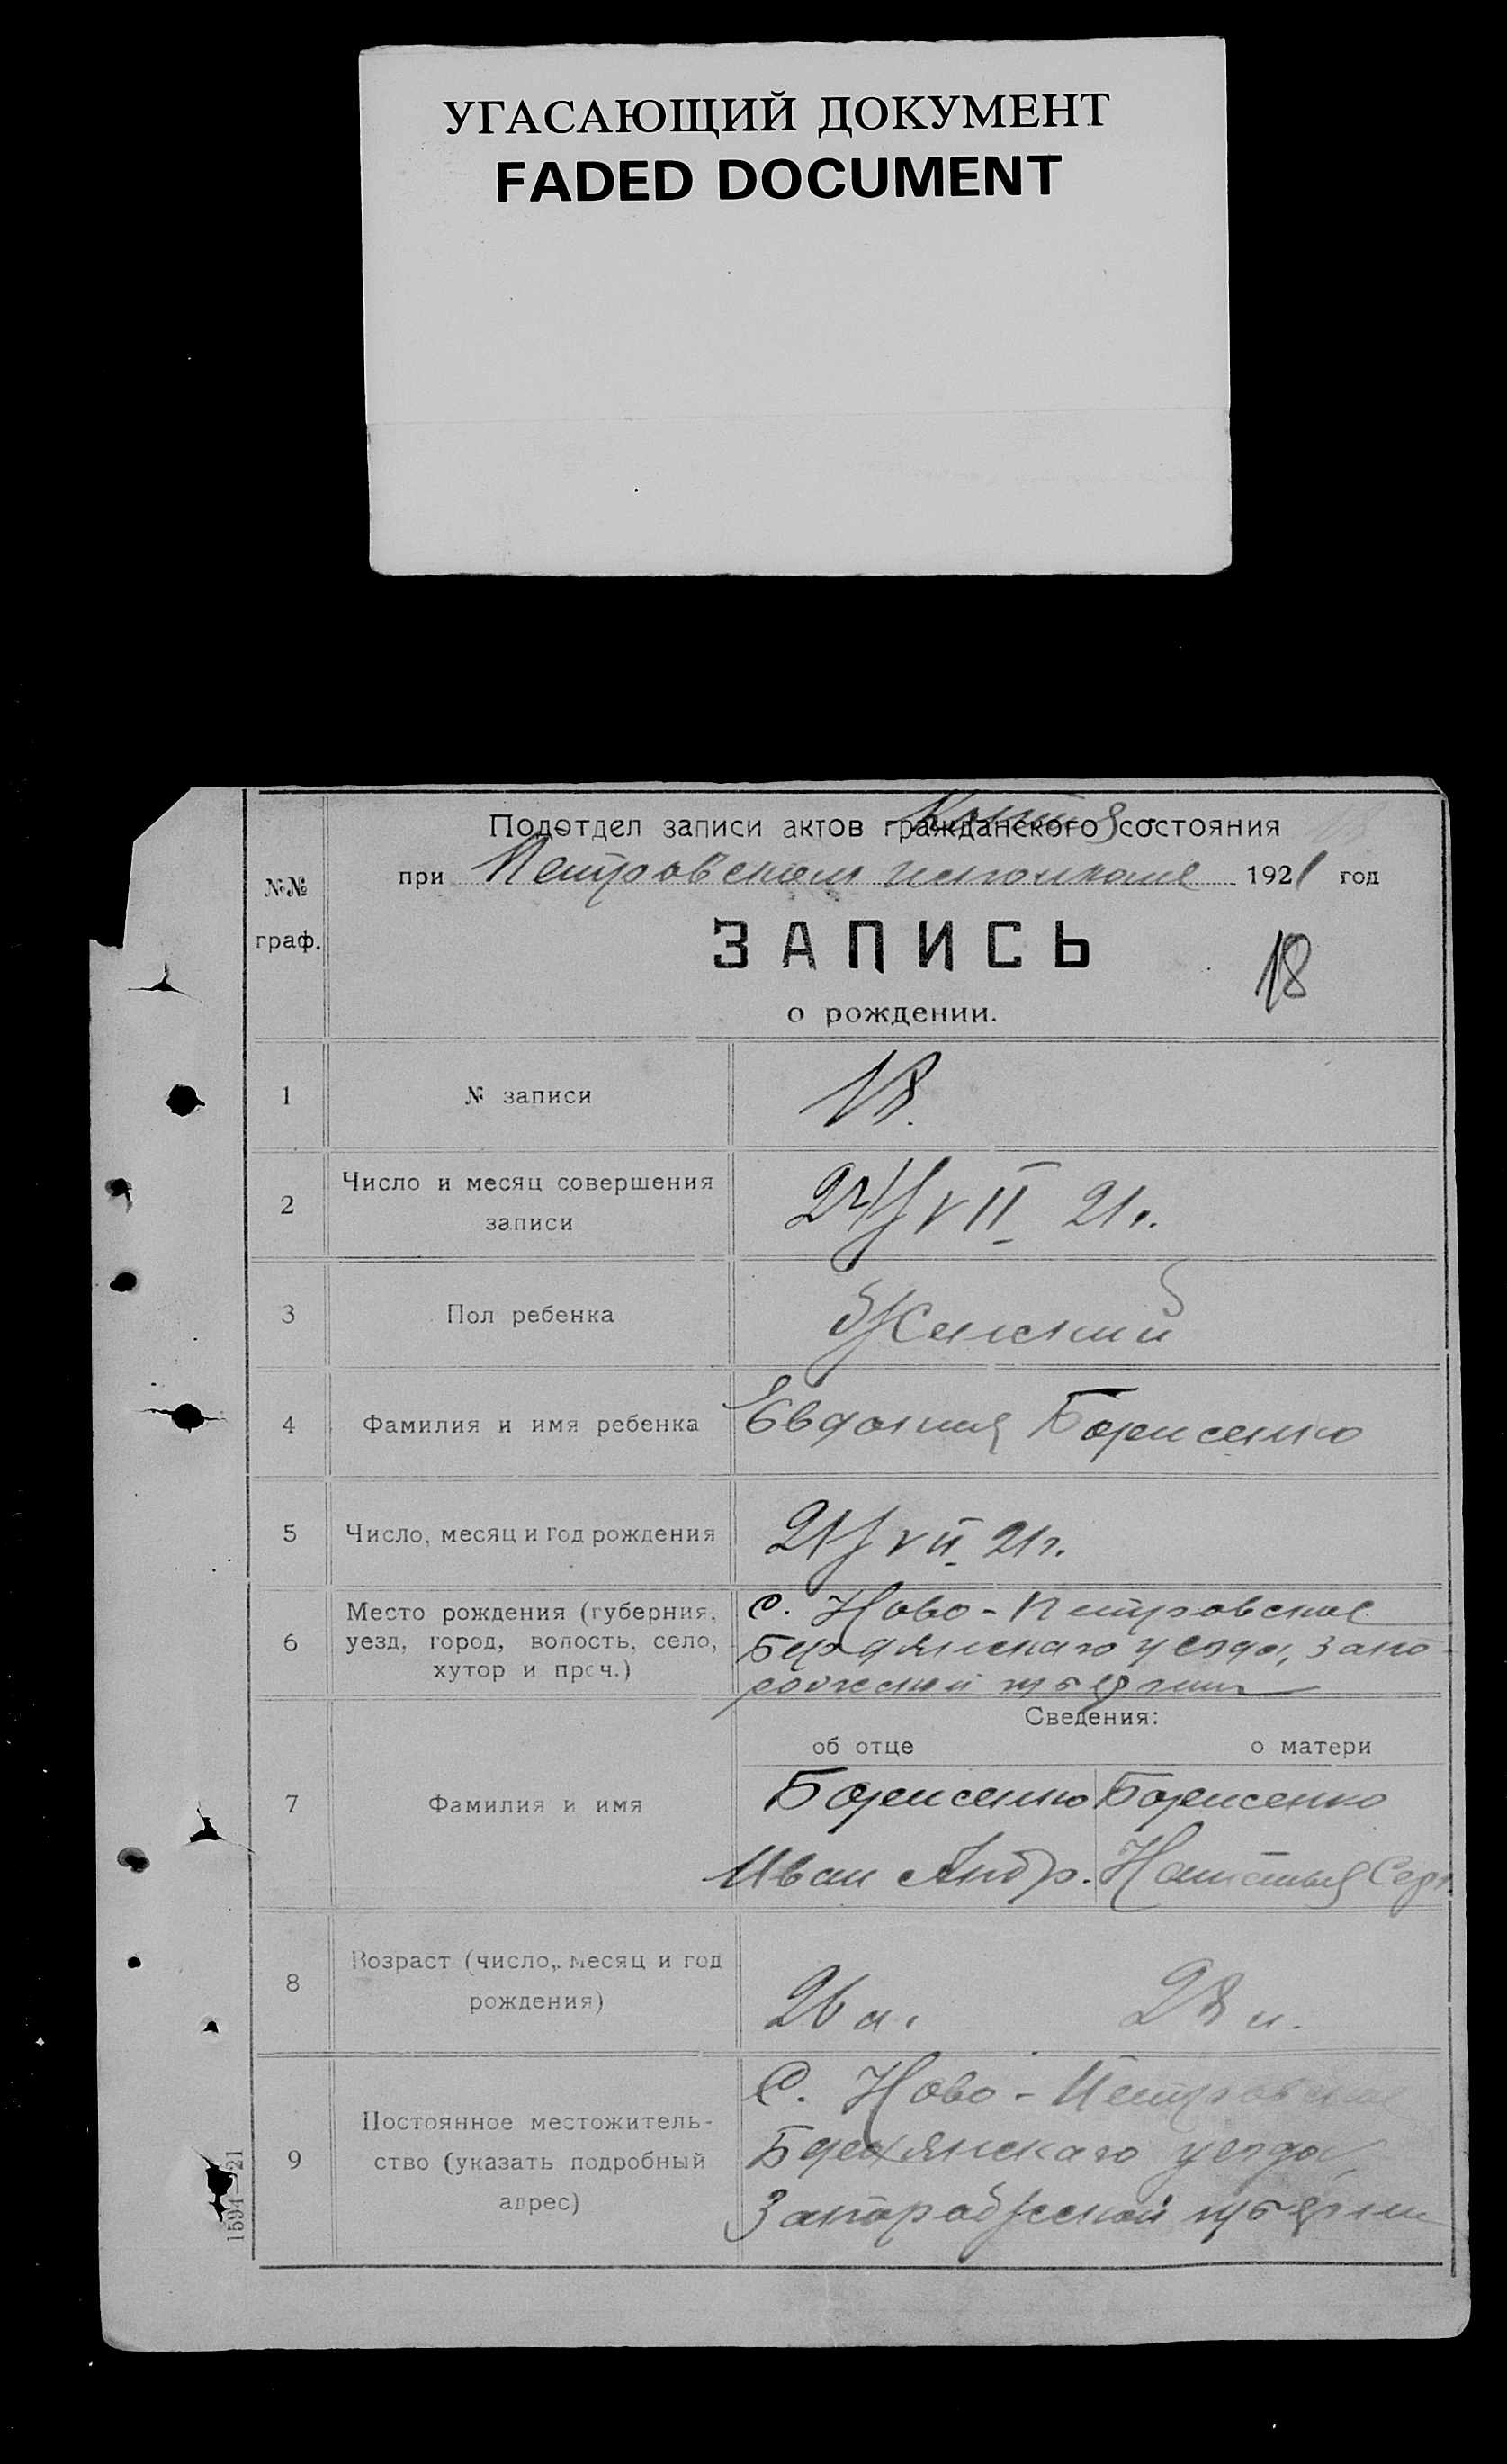 УГАСАЮЩИЙ ДОКУМЕНТ
FADED DOCUMENT
Подотдел записи актов гражданского состояния
при Петровском исполкоме 1921 год
№№
граф.
ЗАПИСЬ
18
о рождении.
1 № записи 18.
2 Число и месяц совершения
записи
24/VII 21 г.
3 Пол ребенка Женский
4 Фамилия и имя ребенка Евдокия Борисенко
5 Число, месяц и год рождения 21/VII 21 г.
6 Место рождения (губерния,
уезд, город, волость, село,
хутор и проч.)
с. Ново-Петровское
Бердянскаго уезда, Запо-
рожской губернии
Сведения:
об отце о матери
7 Фамилия и имя
Борисенко Борисенко
Иван Андр. Наталья Серг.
8 Возраст (число, месяц и год
рождения)
26 л. 28 л.
9 Постоянное местожитель-
ство (указать подробный
адрес)
С. Ново-Петровское
Бердянскаго уезда,
Запорожской губернии
1594—21